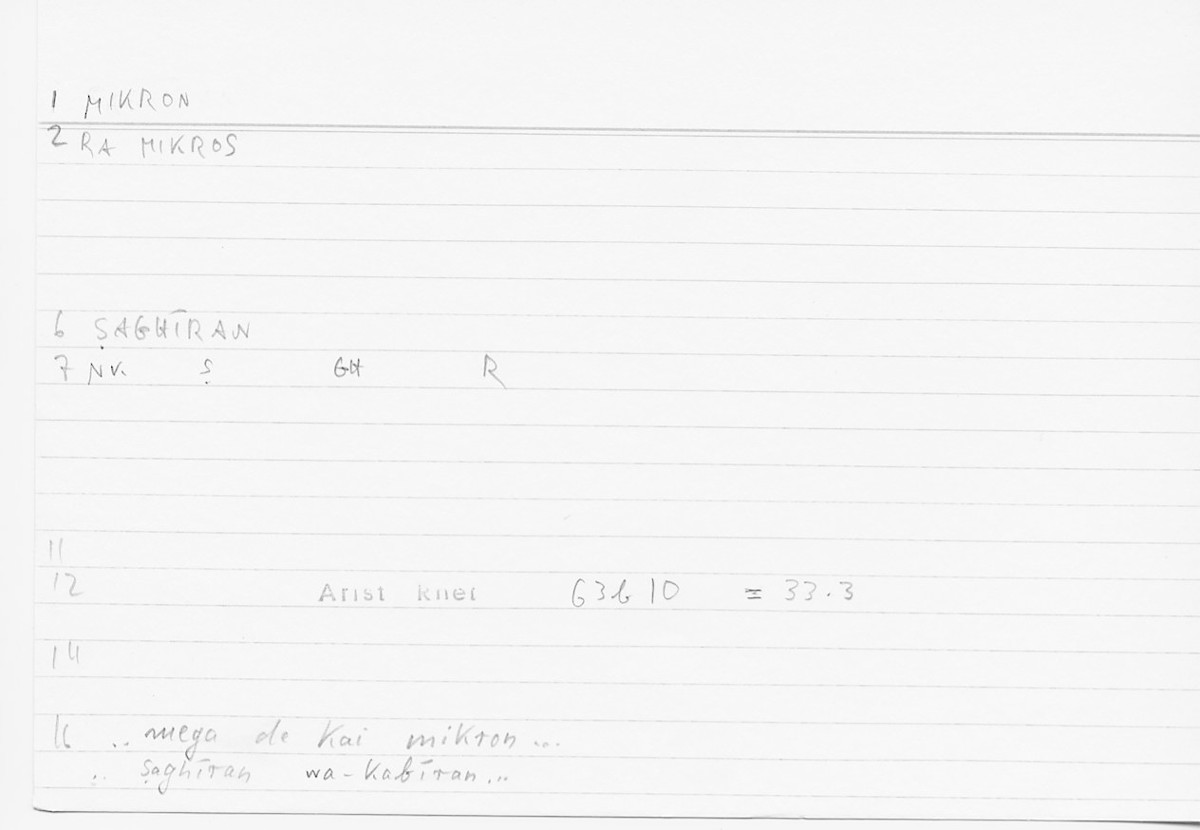 1 MIKRON
2 RA MIKROS
6 ṢAGHĪRAN
7 NV. Ṣ GH R
11
12 Arist Rhet 63b10 = 33.3
14
16 .. mega de kai mikron...
.. ṣaghīran wa-kabīran...